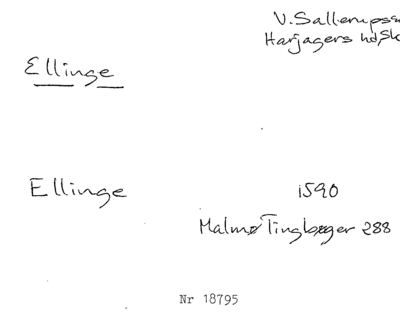 V. Sallerups
Harjagers hd, Sk
Ellinge
Ellinge 1590
Malmø Tingbøger 288
Nr 18795